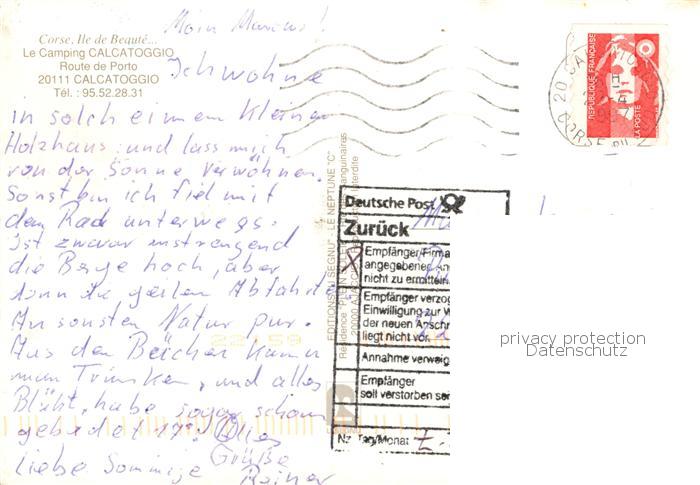 Corse, Ile de Beauté...
Le Camping CALCATOGGIO
Route de Porto
20111 CALCATOGGIO
Tél. : 95.52.28.31
Moin
Ich wohne
in solch einem kleinen
Holzhaus und lass mich
von der Sonne verwöhnen.
Sonst bin ich viel mit
dem Rad unterwegs.
Ist zwar anstrengend
die Berge hoch, aber
dann die geilen Abfahrten
Ansonsten Natur pur.
Aus den Bächen kann
man Trinken, und alles
Blüht, habe sogar schon
gebadet 17°
Liebe Sonnige Grüße
Rainer
EDITIONS "U SEGNU" - LE NEPTUNE "C"
REPUBLIQUE FRANÇAISE
LA POSTE
Deutsche Post
Zurück
Empfänger/Firma
angegebener An
nicht zu ermitteln
Empfänger verzog
Einwilligung zur W
der neuen Anschr
liegt nicht vor.
Annahme verweig
Empfänger
soll verstorben sei
Nz. Tag/Monat
privacy protection
Datenschutz